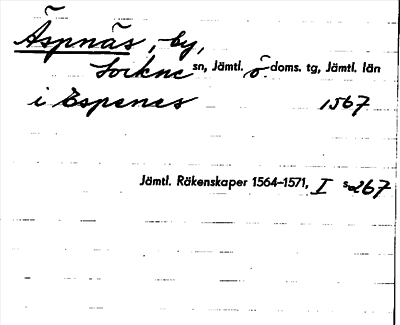 Äspnäs, by,
Lockne sn, Jämtl. ö. doms. tg, Jämtl. län
i Espenes 1567
Jämtl. Räkenskaper 1564–1571, I s. 267